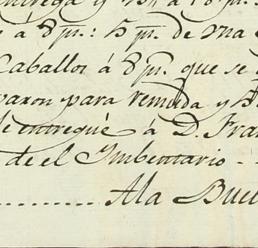 entrega y
â 8 p.s: 5 p.s de una
Caballos â 8 p.s que se
varon para remuda y
le entregué â D. Fran
de el Imbentario -
Ala Buel